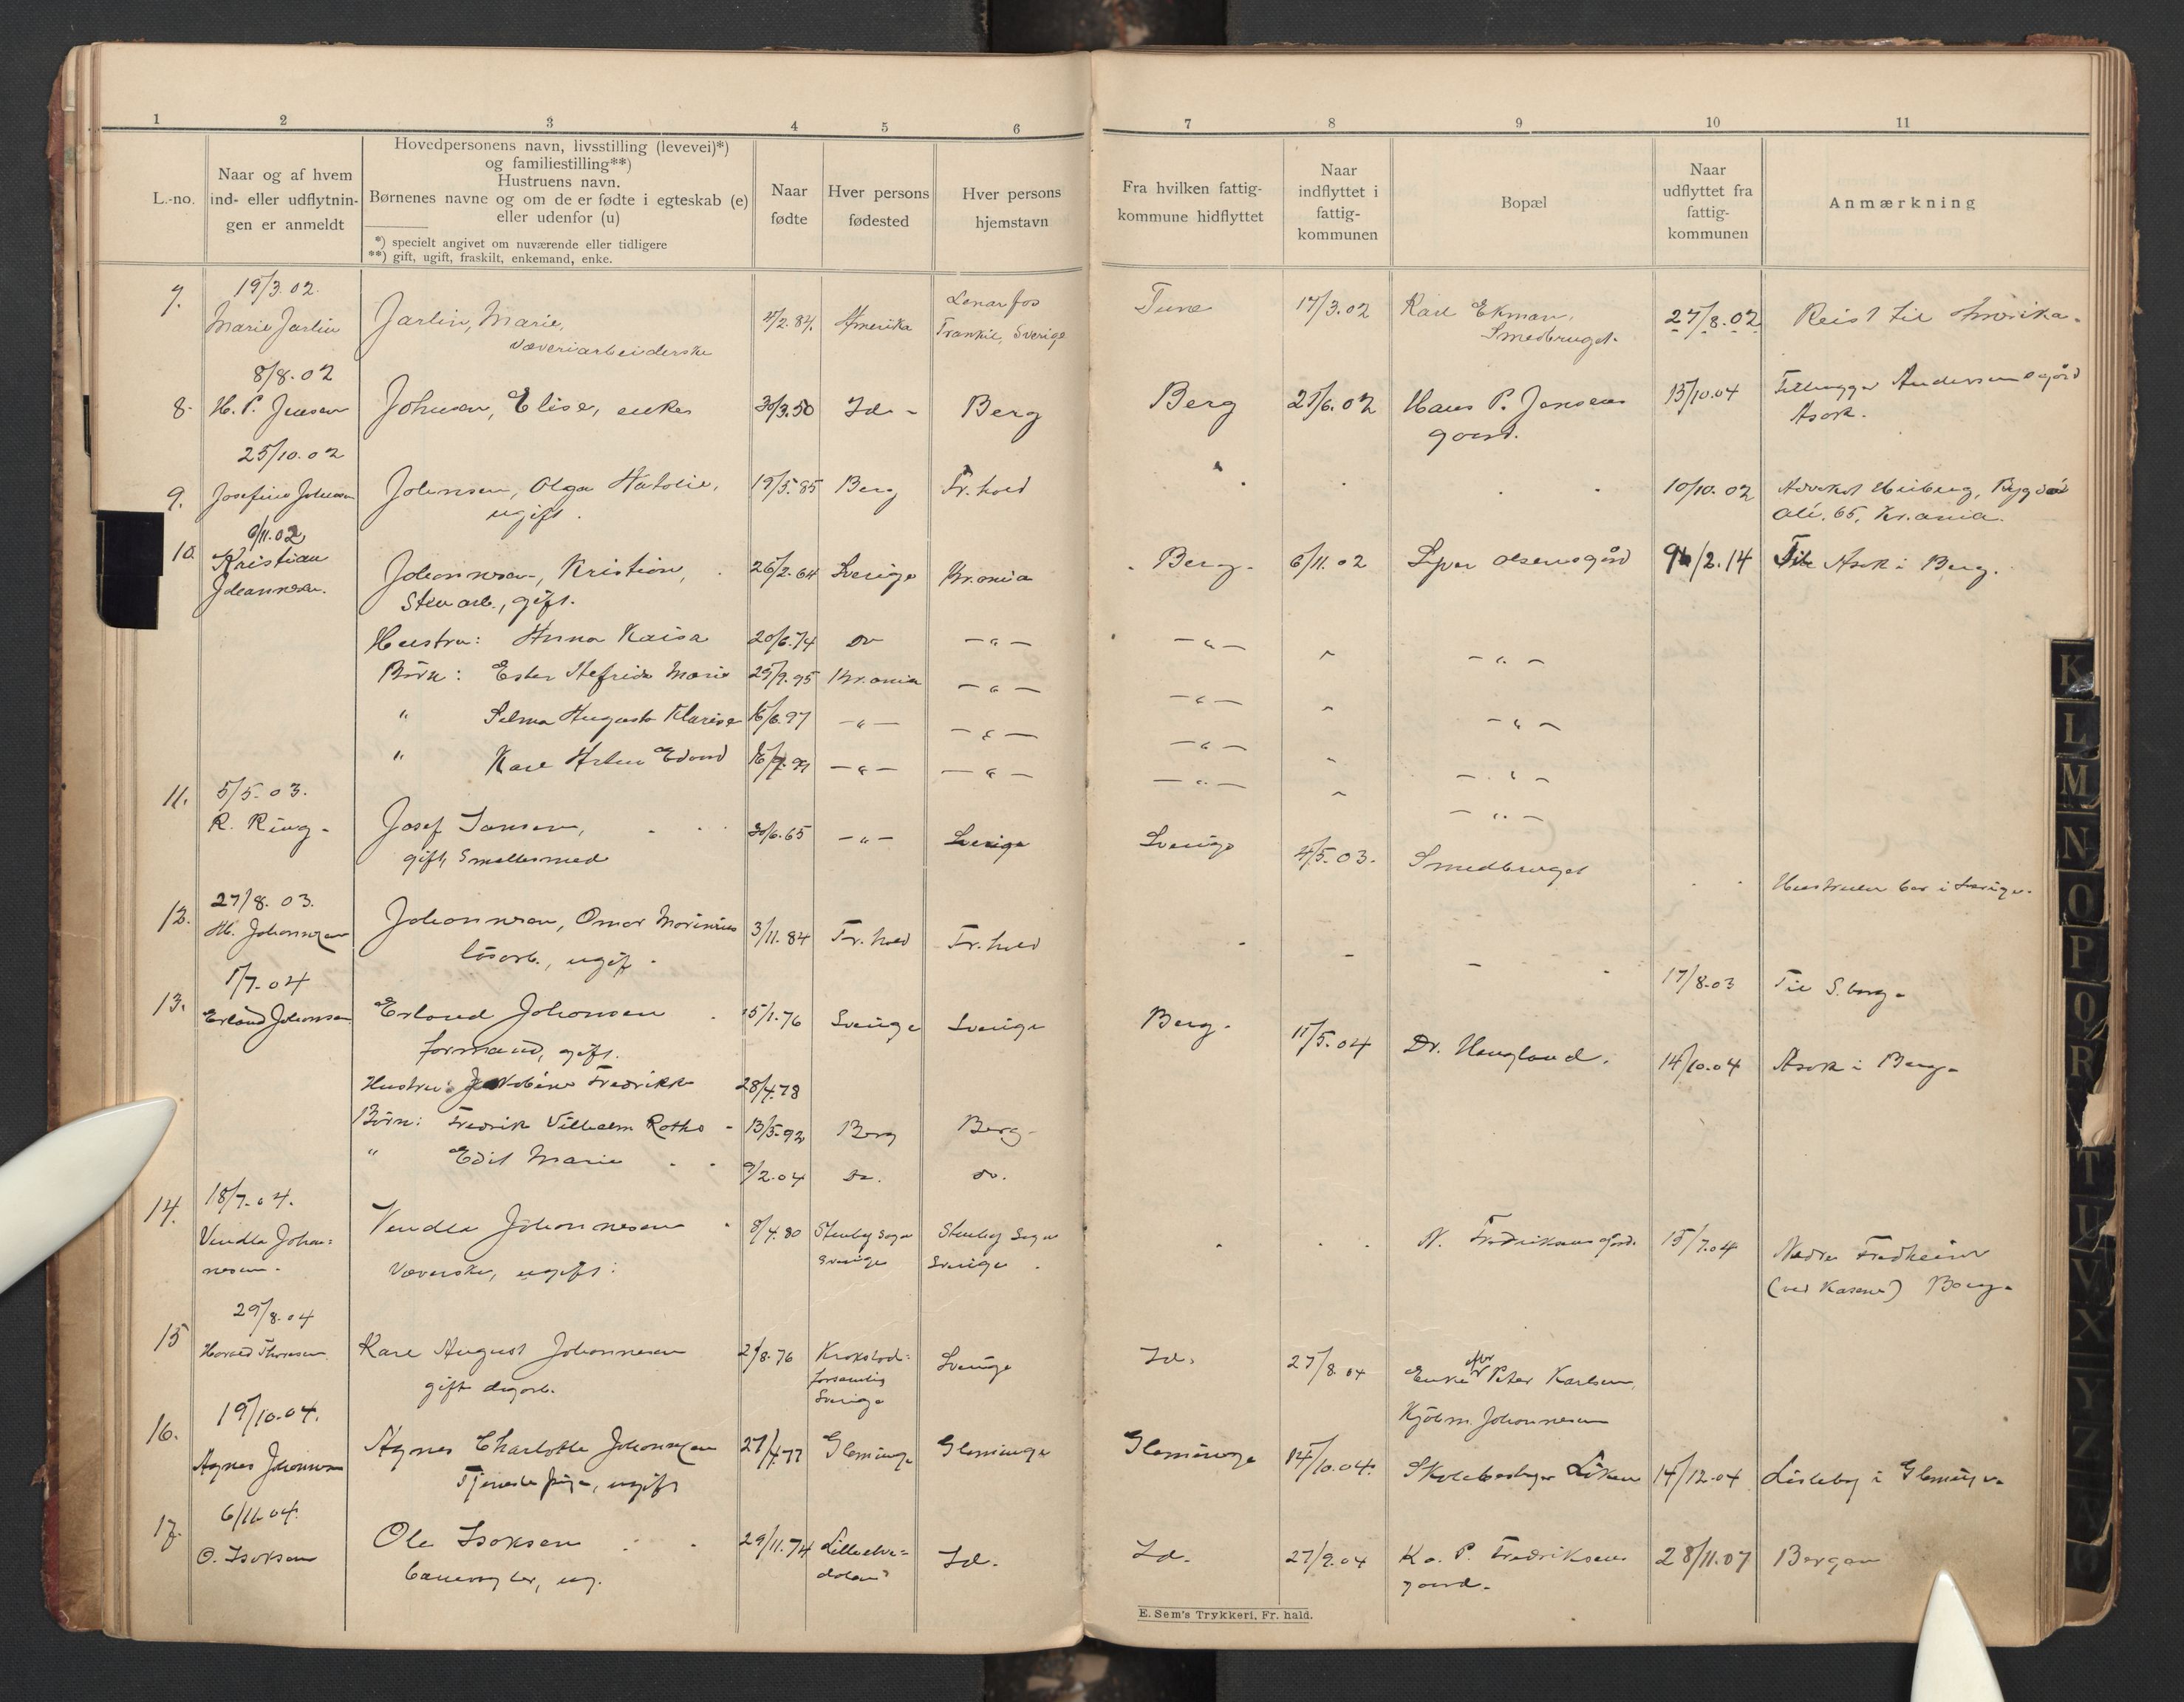 1 2 3 4 5 6 7 8 9 10 11
L.-no.
Naar og af hvem
ind- eller udflytnin-
gen er anmeldt
Hovedpersonens navn, livsstilling (levevei)*)
og familiestilling**)
Hustruens navn.
Børnenes navne og om de er fødte i egteskab (e)
eller udenfor (u)
*) specielt angivet om nuværende eller tidligere
**) gift, ugift, fraskilt, enkemand, enke.
Naar
fødte
Hver persons
fødested
Hver persons
hjemstavn
Fra hvilken fattig-
kommune hidflyttet
Naar
indflyttet i
fattig-
kommunen
Bopæl
Naar
udflyttet fra
fattig-
kommunen
Anmærkning
7. 19/3.02. Marie Jarlin
Jarlin, Marie,
Væveriarbeiderske
4/2.84. Amerika
Sverige
Tune 17/3.02 Karl Ekman,
Smedbruget.
27/8.02 Reist til Amerika.
8. 8/8.02 H. P. Jensen
Johnsen, Elise, enke
30/3.50 Id - Berg
Berg 21/6.02 Hans P. Jensens
gaard.
15/10.04 Andersens gård
Asak.
9. 25/10.02 Josefine Johnsen
Johnsen, Olga Natalie,
ugift.
19/5.85 Berg Fr.hald
10/10.02 Advokat Heiberg, Bygdø
Alé. 65, Kr.ania.
10. 6/11.02 Kristian
Johannesen.
Johannesen, Kristian,
Stenarb., gift.
26/2.64 Sverige Kr.ania
Berg. 6/11.02 Syver Olsens gård
/2.14 Til Asak i Berg.
Hustru: Anna Kaisa 20/6.74 Do — " — — " — " — " —
Børn: Ester Alfrida Marie 29/9.95 Kr.ania — " — — " — " — " —
" Selma Augusta Klarise 16/6.97 — " — — " — — " — " — " —
" Karl Edvard .99 — " — — " — — " — " — " —
11. 5/5.03. R. Ring.
Josef Jansen,
gift, Smeltesmed
30/6.65 — " — Sverige
Sverige 4/5.03. Smedbruget
Hustruen bor i Sverige.
12. 27/8.03. M. Johannesen
Johannesen, Omar Marinius
løsarb., ugift.
3/11.84 Fr.hald Fr.hald
17/8.03 Til S.borg.
13. 1/7.04 Erland Johansen
Erland Johansen
formand, gift.
15/1.76 Sverige Sverige
Berg. 11/5.04 Dr. Haugland.
14/10.04 Asak i Berg.
Hustru: Jakobine Fredrikke 28/4.78
Børn: Fredrik Vilhelm 13/5.92 Berg Berg.
" Edit Marie 9/2.04 Do. do.
14. 18/7.04. Vendla Johan-
nesen.
Vendla Johannesen
Væverske, ugift.
8/4.80 Stenby Sogn
Sverige
Stenby Sogn
Sverige
N. Fredriksens gård. 15/7.04
Nedre Fredheim
(ved Kasene) Berg.
15 29/8.04 Harald Thoresen
Karl August Johannesen
gift dagarb.
2/8.76 Krokstad-
forsamling
Sverige
Sverige
Id. 27/8.04
Enke efter Peter Karlsen,
Kjøbm. Johannesen
16. 19/10.04. Agnes Johannesen
Agnes Charlotte Johannesen
Tjenestepige, ugift
27/4.77 Glemminge Glemminge
Glemminge 14/10.04. Skolebestyrer Liken
14/12.04 Lisleby i Glemminge
17. 6/11.04. O. Isaksen
Ole Isaksen
Banevogter, ug.
29/11.74 Lilleelve-
dalen
Id.
Id. 27/9.04 Ka. P. Fredriksens
gaard.
28/11.07 Bergen
E. Sem's Trykkeri, Fr. hald.
K
L
M
N
O
P
Q
R
T
U
V
X
Y
Z